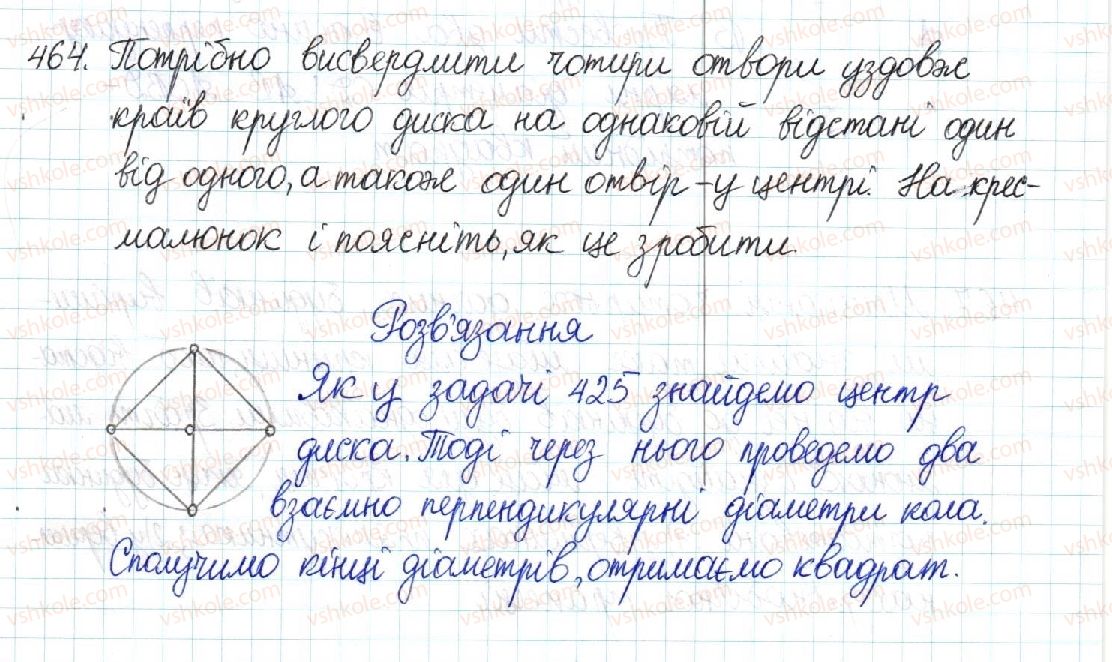 464. Потрібно висвердлити чотири отвори уздовж
країв круглого диска на однаковій відстані один
від одного, а також один отвір - у центрі. На крес-
малюнок і поясніть, як це зробити.
Розв'язання
Як у задачі 425 знайдемо центр
диска. Тоді через нього проведемо два
взаємно перпендикулярні діаметри кола.
Сполучимо кінці діаметрів, отримаємо квадрат.